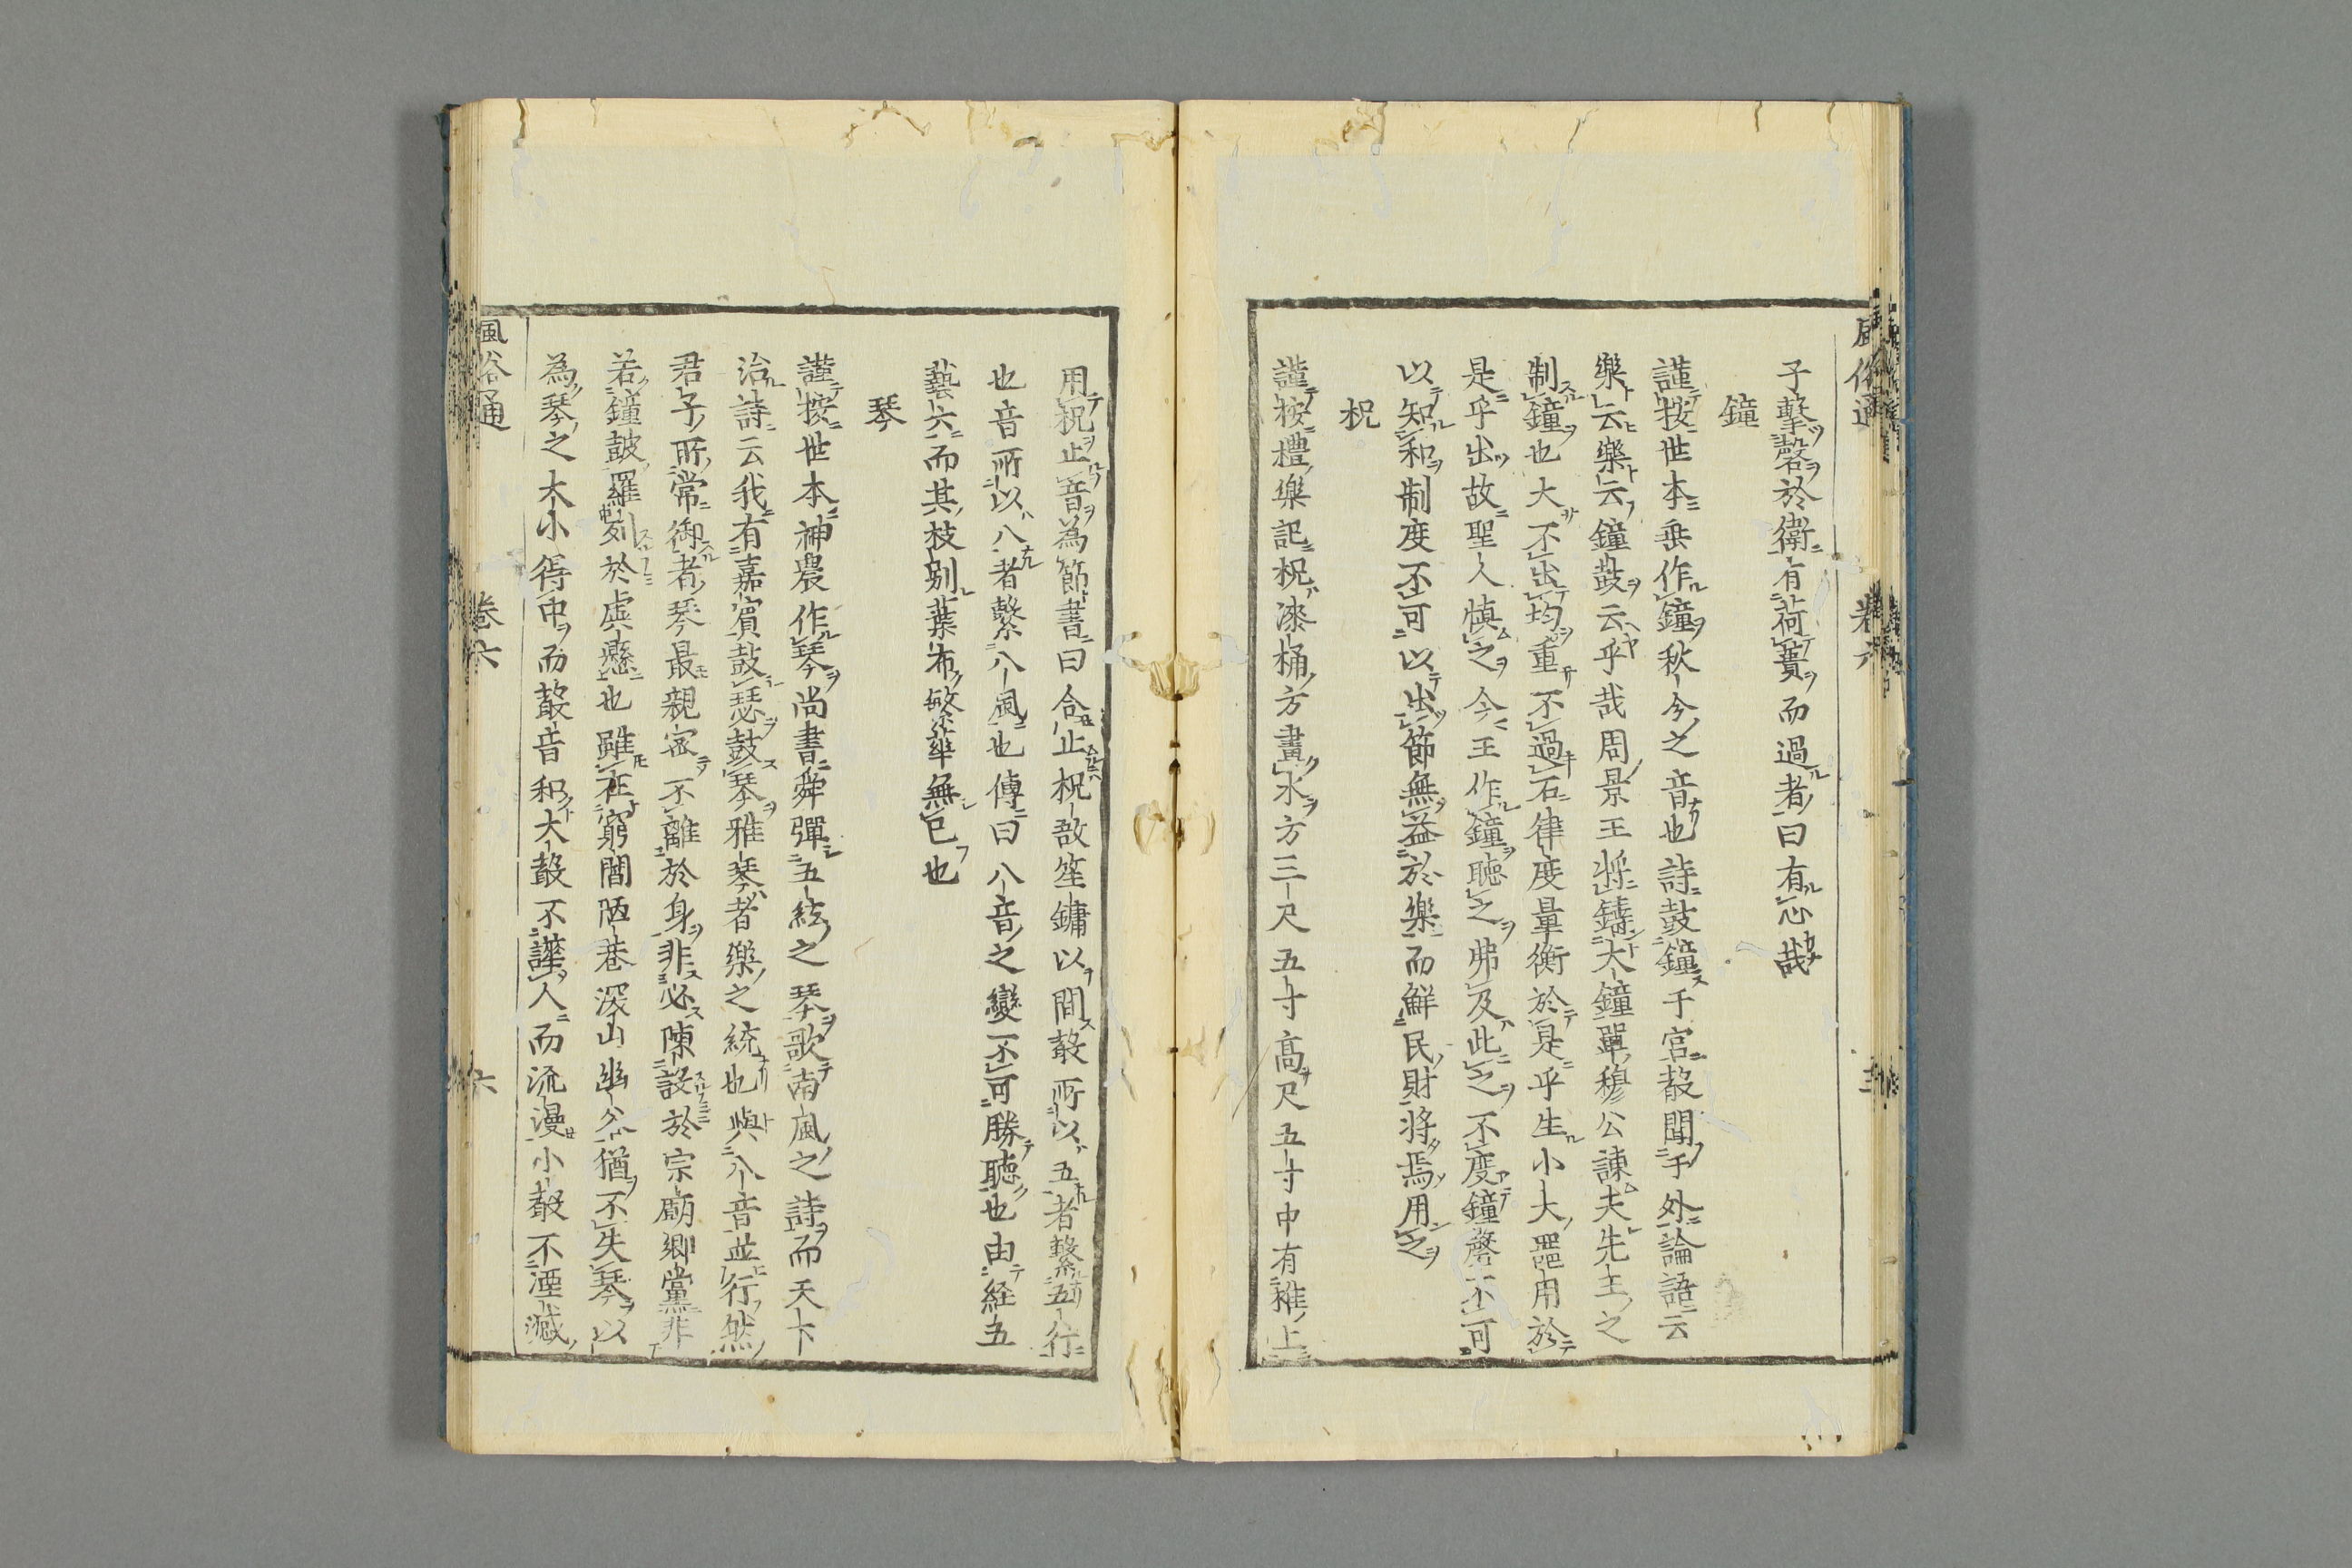 風俗通 卷六
子擊磬於衛有荷蕢而過者曰有心哉
鐘
謹按世本垂作鐘秋今之音也詩鼓鐘于宮聲聞于外論語云
樂云樂云鐘鼓云乎哉周景王将鑄大鐘單穆公諫夫先王之
制鐘也大不出均重不過石律度量衡於是乎生小大噐用於
是乎出故聖人慎之今王作鐘聴之弗及此之不度鐘磬不可
以知和制度不可以出節無益於樂而鮮民財将焉用之
柷
謹按禮樂記柷漆桶方畫水方三尺五寸高尺五寸中有椎上
用柷止音為節書曰合止柷敔笙鏞以間聲所以五者繫五行
也音所以八者繫八風也傳曰八音之變不可勝聴也由経五
藝六而其枝别葉布繁華無已也
琴
謹按世本神農作琴尚書舜彈五絃之琴歌南風之詩而天下
治詩云我有嘉賓鼓瑟鼓琴雅琴者樂之統也與八音並行然
君子所常御者琴最親宻不離於身非必陳設於宗廟卿黨非
若鐘皷羅列於虡懸也雖在窮閻陋巷深山幽谷猶不失琴以
為琴之大小得中而聲音和大聲不譁人而流漫小聲不湮滅
風俗通 卷六 六